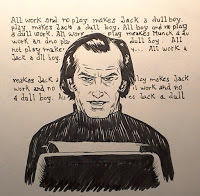 All work and no play makes Jack a dull boy.
play makes Jack a dull boy. All boy and no play
a dull work. All work play makes a
work no play dull boy. All
not play make All work a
Jack a dll boy.
makes Jack play makes Jack
work and no work and no
dull boy. Al makes Jack a dull